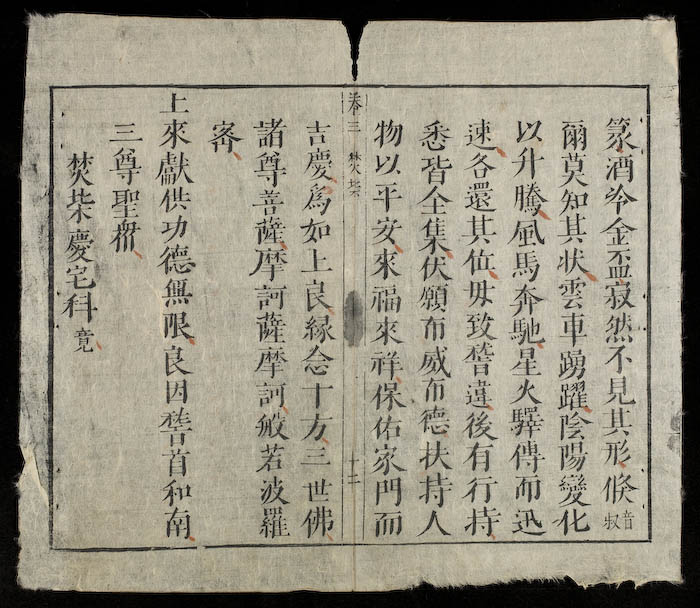 篆酒冷金盃寂然不見其形倏音叔
爾莫知其状雲車踴躍陰陽變化
以升騰風馬奔馳星火驛傳而迅
速各還其位毋致稽違後有行持
悉皆全集伏願布威布德扶持人
物以平安來福來祥保佑家門而
卷三 焚柴 十二
吉慶爲如上良緣念十方三世佛
諸尊菩薩摩訶薩摩訶般若波羅
密
上來獻供功德無限良因稽首和南
三尊聖衆
焚柴慶宅科竟